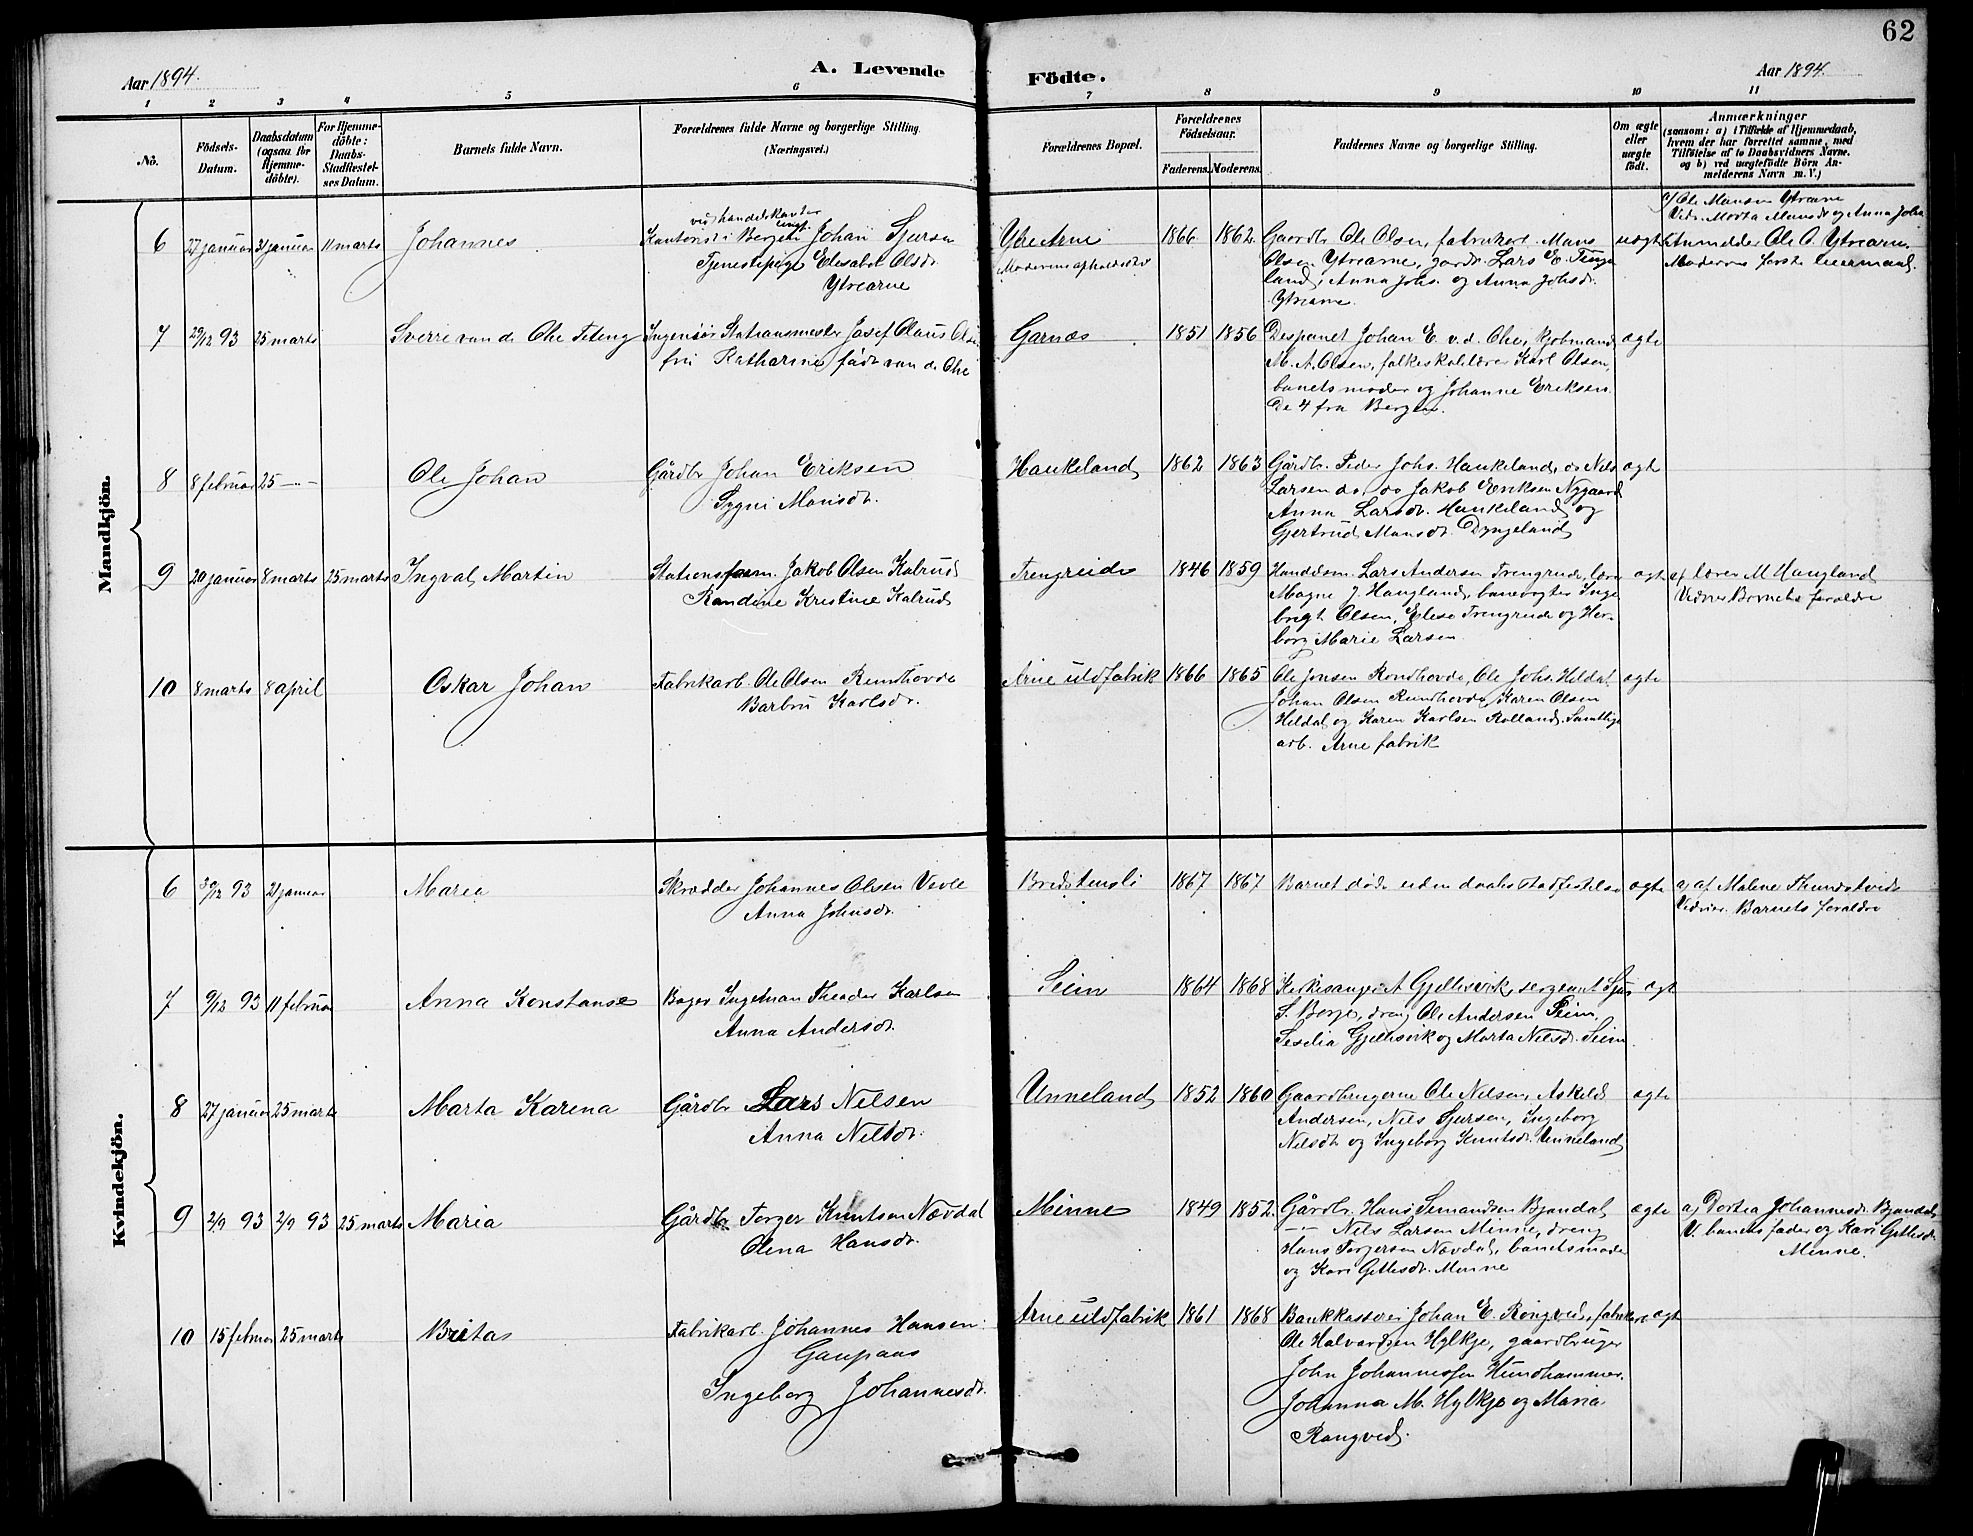 62
Aar 1894.
A. Levende
Födte.
Aar 1894.
1 2 3 4 5 6 7 8 9 10 11
No.
Födsels-Datum.
Daabsdatum (ogsaa for Hjemme-döbte).
For Hjemme-döbte: Daabs-Stadfæstel-ses Datum.
Barnets fulde Navn.
Forældrenes fulde Navne og borgerlige Stilling.
(Næringsvei.)
Forældrenes Bopæl.
Forældrenes Födselsaar.
Faderens. Moderens.
Faddernes Navne og borgerlige Stilling.
Om ægte eller uægte födt.
Anmærkninger
(saasom: a) i Tilfælde af Hjemmedaab,
hvem der har forrettet samme, med
Tilföielse af to Daabsvidners Navne.
og b) ved uægtefödte Börn An-
melderens Navn m. V.)
Mandkjön.
6 27 januar 31 januar 11 marts Johannes
Kontorist i Bergen Johan Sjursen
Tjenestepige Elisabet Olsdr.
Ytrearne
Ytre Arne
Moderens opholdssted
1866 1862
Gaardbr. Ole Olsen, fabrikarb. Mons
Olsen Ytrearne, gardr. Lars E.
land, Anna Johs. og Anna Johsdr.
Ytrearne.
uægt
a) Ole Monsen Ytrearne
Vidn. Marta Monsdr og Anna Johs
Anmelder Ole O. Ytrearne.
Moderens første leiermaal.
7 29/12 93 25 marts Sverre van de Ohe Teteng
Ingeniør Stationsmester Josef Claus
fru Katharine født van de Ohe
Garnæs 1851 1856
Johan E. v. d. Ohe, kjøbmand
M. A. Olsen, folkeskolelærer Karl Olsen,
barnets moder og Johanne Eriksen.
De 4 fra Bergen.
ægte
8 8 februar 25 —
Ole Johan
Gårdbr Johan Eriksen
Sygni Monsdr.
Haukeland 1862 1863
Gårdbr. Peder Johs. Haukeland, do Nils
Larsen do, do Jakob Eriksen Nygaard
Anna Larsdr. Haukeland og
Gjertrud Monsdr. Dyngeland
ægte
9 20 januar 8 marts 25 marts Ingval Martin
Stationsform. Jakob Olsen Kalrud
Randine Kristine Kalrud
Trengreide 1846 1859
Lars Andersen Trengreide, lærer
Magne J. Haugland, banevogter Inge
brigt Olsen, Elise Trengreide og Her-
borg Marie Larsen
ægte
a) lærer M Haugland
Vidner Barnets forældre
10 8 marts 8 april
Oskar Johan
Fabrikarb. Ole Olsen Rundhovde
Barbru Karlsdr.
Arne uldfabrik 1866 1865
Ole Jonsen Rondhovde, Ole Johs. Heldal
Johan Olsen Rundhovde, Karen Olsen
Heldal og Karen Karlsen Rolland. Samtlige
arb. Arne fabrik
ægte
Kvindekjön.
6 30/12 93 21 januar
Marea
Skrædder Johannes Olsen Vevle
Anna Johnsdr.
Bredstensli 1867 1867
Barnet døde uden daabs stadfestelse
ægte
a) af Malene
Vidner. Barnets forældre
7 9/12 93 11 februar
Anna Konstanse
Bager Ingeman Theodor Karlsen
Anna Andersdr.
Seim 1864 1868
Kirkesanger A Gjellesvik, sergeant Sjur
S. Borge, dreng Ole Andersen Seim,
Sesilia Gjellesvik og Marta Nilsdr. Seim
ægt
8 27 januar 25 marts
Marta Karina
Gårdbr Lars Nilsen
Anna Nilsdr.
Unneland 1852 1860
Gaardbrugerne Ole Nilsen, Askild
Andersen, Nils Sjursen, Ingeborg
Nilsdr og Ingeborg Knutsdr. Unneland
ægte
9 2/9 93 2/9 93 25 marts Maria
Gårdbr Torger Knutsen Nævdal
Olena Hansdr.
Minne 1849 1852.
Gårdbr. Hans Simondsen Bjøndal
—"— Nils Larsen Minne, dreng
Hans Torgersen Nævdal, barnets moder
og Kari Gittlesdr. Minne
ægte
a) Dortea Johannesdr. Bjøndal,
V. barnets fader og Kari Gittlesdr
Minne.
10 15 februar 25 marts
Britas
Fabrikarb. Johannes Hansen
Gaupaas
Ingeborg Johannesdr.
Arne uldfabrik 1861 1868
Bankkasserer Johan E. Rongved, fabrikarb
Ole Halvardsen Hylkje, gaardbruger
John Johannessen Hundhammer.
Johanna M. Hylkje og Maria
Rongved.
ægt